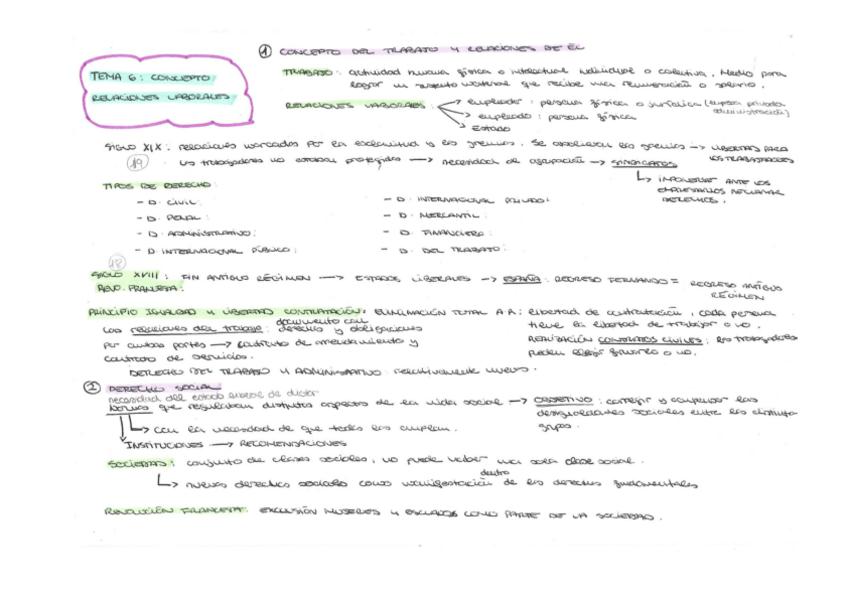 ① CONCEPTO DEL TRABAJO Y RELACIONES DE ÉL
TEMA 6: CONCEPTO
RELACIONES LABORALES
TRABAJO: actividad humana física o intelectual individual o colectiva. Medio para
lograr un sustento material que recibe una remuneración o salario.
RELACIONES LABORALES: → empleador: persona física o jurídica (empresa privada, administración)
→ empleado: persona física
→ Estado
SIGLO XIX: relaciones marcadas por la esclavitud y los gremios. Se los gremios → LIBERTAD PARA
LOS TRABAJADORES
19 Los trabajadores no estaban protegidos → necesidad de agrupación → SINDICATOS
↳ IMPONERSE ANTE LOS
EMPRESARIOS RECLAMAR
DERECHOS.
TIPOS DE DERECHO:
- D. CIVIL:
- D. PENAL:
- D. ADMINISTRATIVO:
- D. INTERNACIONAL PÚBLICO:
- D. INTERNACIONAL PRIVADO:
- D. MERCANTIL:
- D. FINANCIERO:
- D. DEL TRABAJO:
18
SIGLO XVIII: FIN ANTIGUO RÉGIMEN → ESTADOS LIBERALES → ESPAÑA: REGRESO FERNANDO = REGRESO ANTIGUO
RÉGIMEN
REVO. FRANCESA:
PRINCIPIO IGUALDAD Y LIBERTAD CONTRATACIÓN: ELIMINACIÓN TOTAL A.R.: libertad de contratación, cada persona
tiene la libertad de trabajar o no.
documento con
Las relaciones del trabajo: derechos y obligaciones
por ambas partes → contrato de arrendamiento y
contrato de servicios.
REALIZACIÓN CONTRATOS CIVILES: los trabajadores
pueden elegir gremio o no.
DERECHO DEL TRABAJO Y ADMINISTRATIVO: relativamente nuevos.
② DERECHO SOCIAL
necesidad del estado liberal de dictar
normas que regulaban distintos aspectos de la vida social → OBJETIVO: corregir y compensar las
desigualdades sociales entre los distintos
grupos.
↳ con la necesidad de que todos las cumplan.
INSTITUCIONES → RECOMENDACIONES
SOCIEDAD: conjunto de clases sociales, no puede haber una sola clase social.
dentro
↳ nuevos derechos sociales como manifestación de los derechos fundamentales
REVOLUCIÓN FRANCESA: EXCLUSIÓN MUJERES Y ESCLAVOS COMO PARTE DE LA SOCIEDAD.